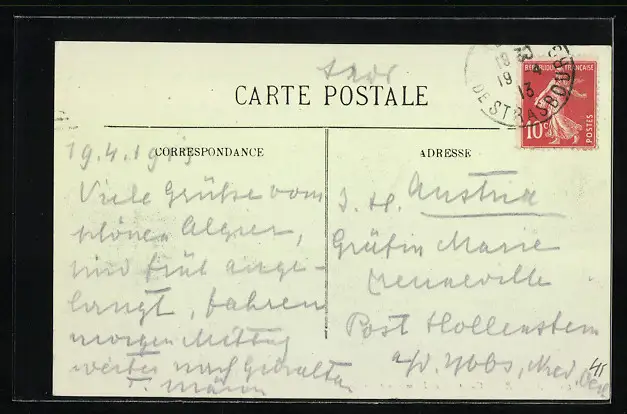 CARTE POSTALE
18 30
19 - 4
13
DE STRASBOURG
REPUBLIQUE FRANÇAISE
10c
POSTES
CORRESPONDANCE
19.4.1913
Viele Grüße vom
schönen Algier,
sind früh ange-
langt, fahren
morgen Mittag
weiter nach Gibraltar
ADRESSE
I. H. Austria
Gräfin Marie
Post Hollenstein
a/d Ybbs, Nied. Oest